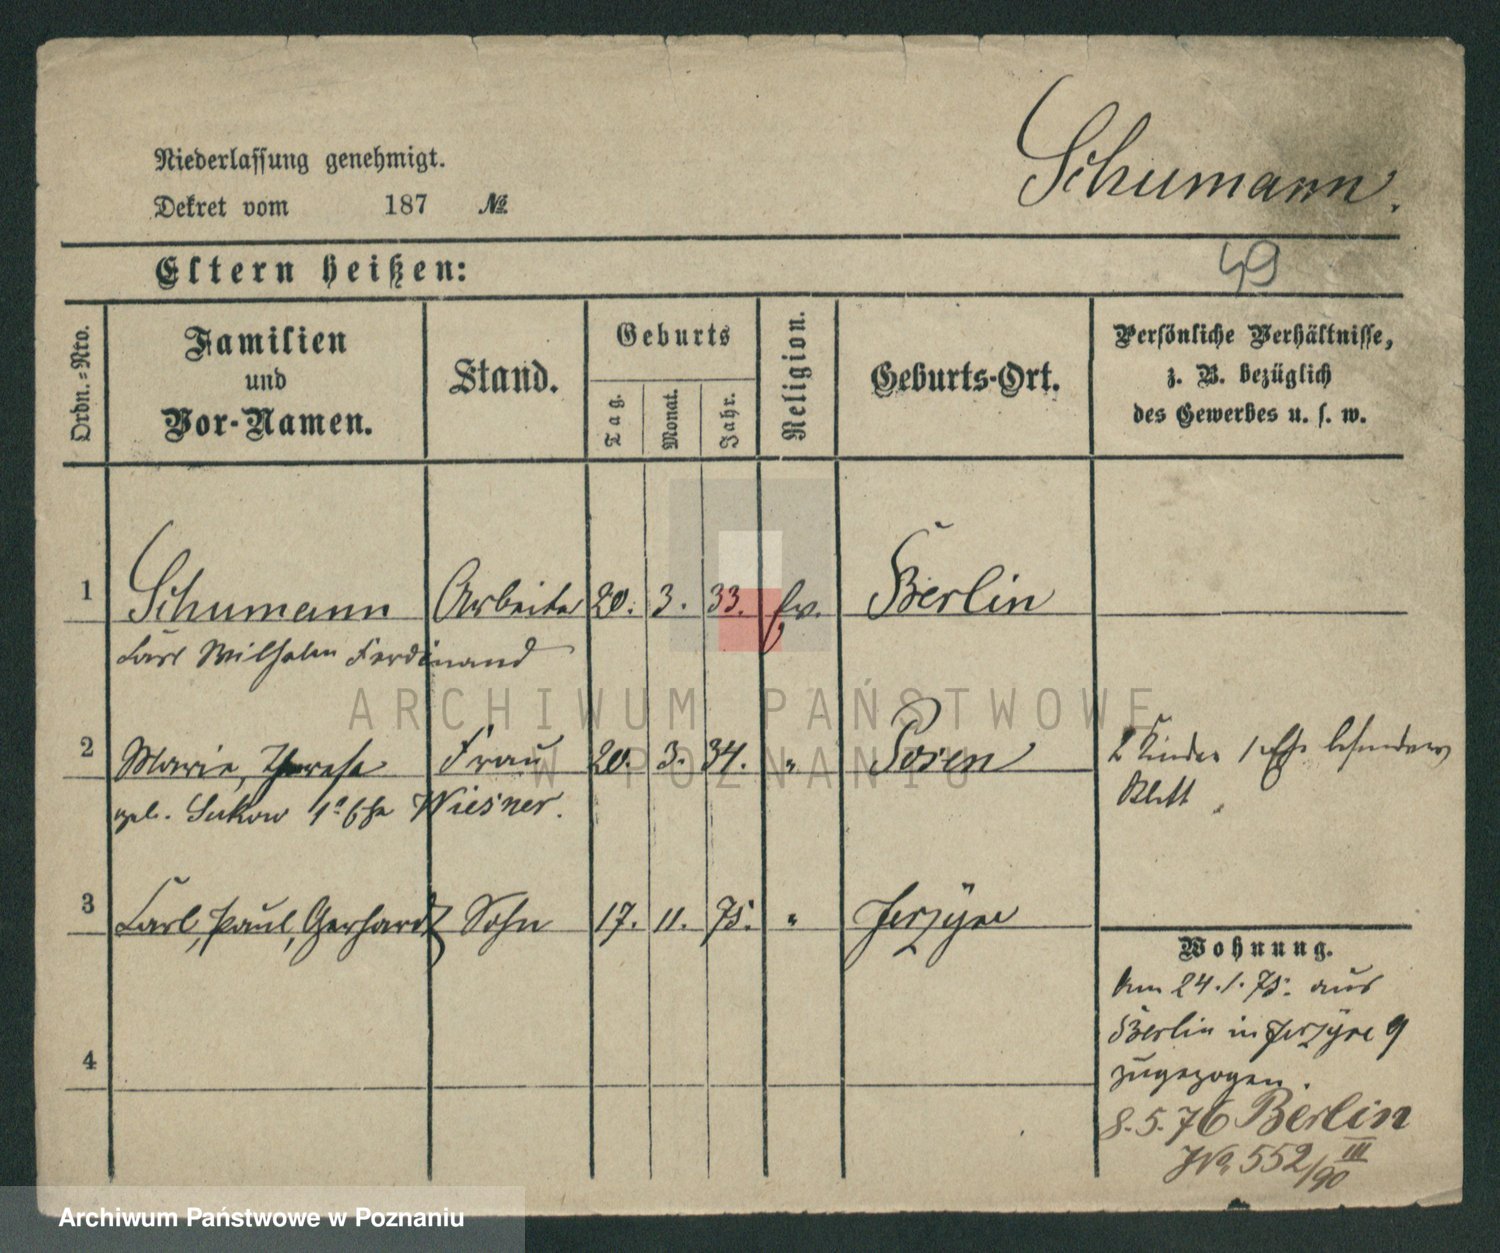 Schumann.
Niederlassung genehmigt.
Dekret vom 187 №
49
Eltern heißen:
Ordn.=Nro.
Familien
und
Vor-Namen.
Stand.
Geburts
Tag.
Monat.
Jahr.
Religion.
Geburts-Ort.
Persönliche Verhältnisse,
z. B. bezüglich
des Gewerbes u. s. w.
1 Schumann Arbeiter 20. 3. 33. ev. Berlin
Carl Wilhelm Ferdinand
2 Marie, Therese Frau 20. 3. 34. " Posen
geb. Sukow 1e Ehe Wiesner.
2 Kinder 1 Ehe besonderes
Blatt
3 Carl, Paul, Gerhard Sohn 17. 11. 75. " Jerzyce
4
Wohnung.
Am 24.1.75. aus
Berlin in Jerzyce 9
zugezogen.
8.5.76 Berlin
No. 552/90 III
ARCHIWUM PAŃSTWOWE
W POZNANIU
Archiwum Państwowe w Poznaniu